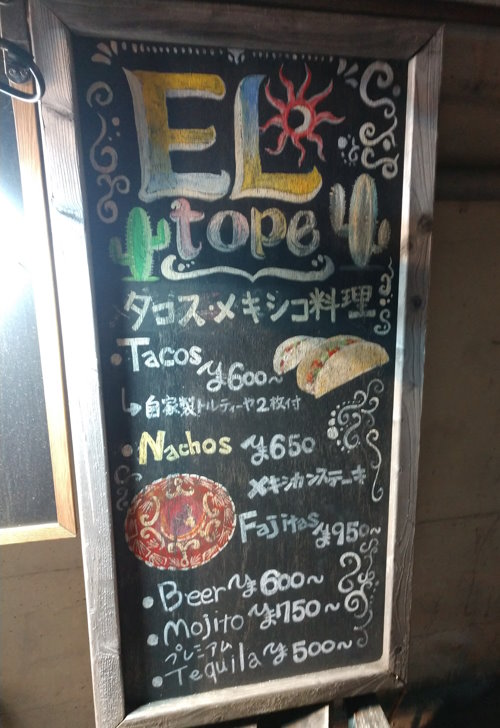 EL
tope
タコス・メキシコ料理
• Tacos ¥600~
↳自家製トルティーヤ2枚付
• Nachos ¥650
メキシカンステーキ
Fajitas ¥950~
• Beer ¥600~
• Mojito ¥750~
プレミアム
• Tequila ¥500~